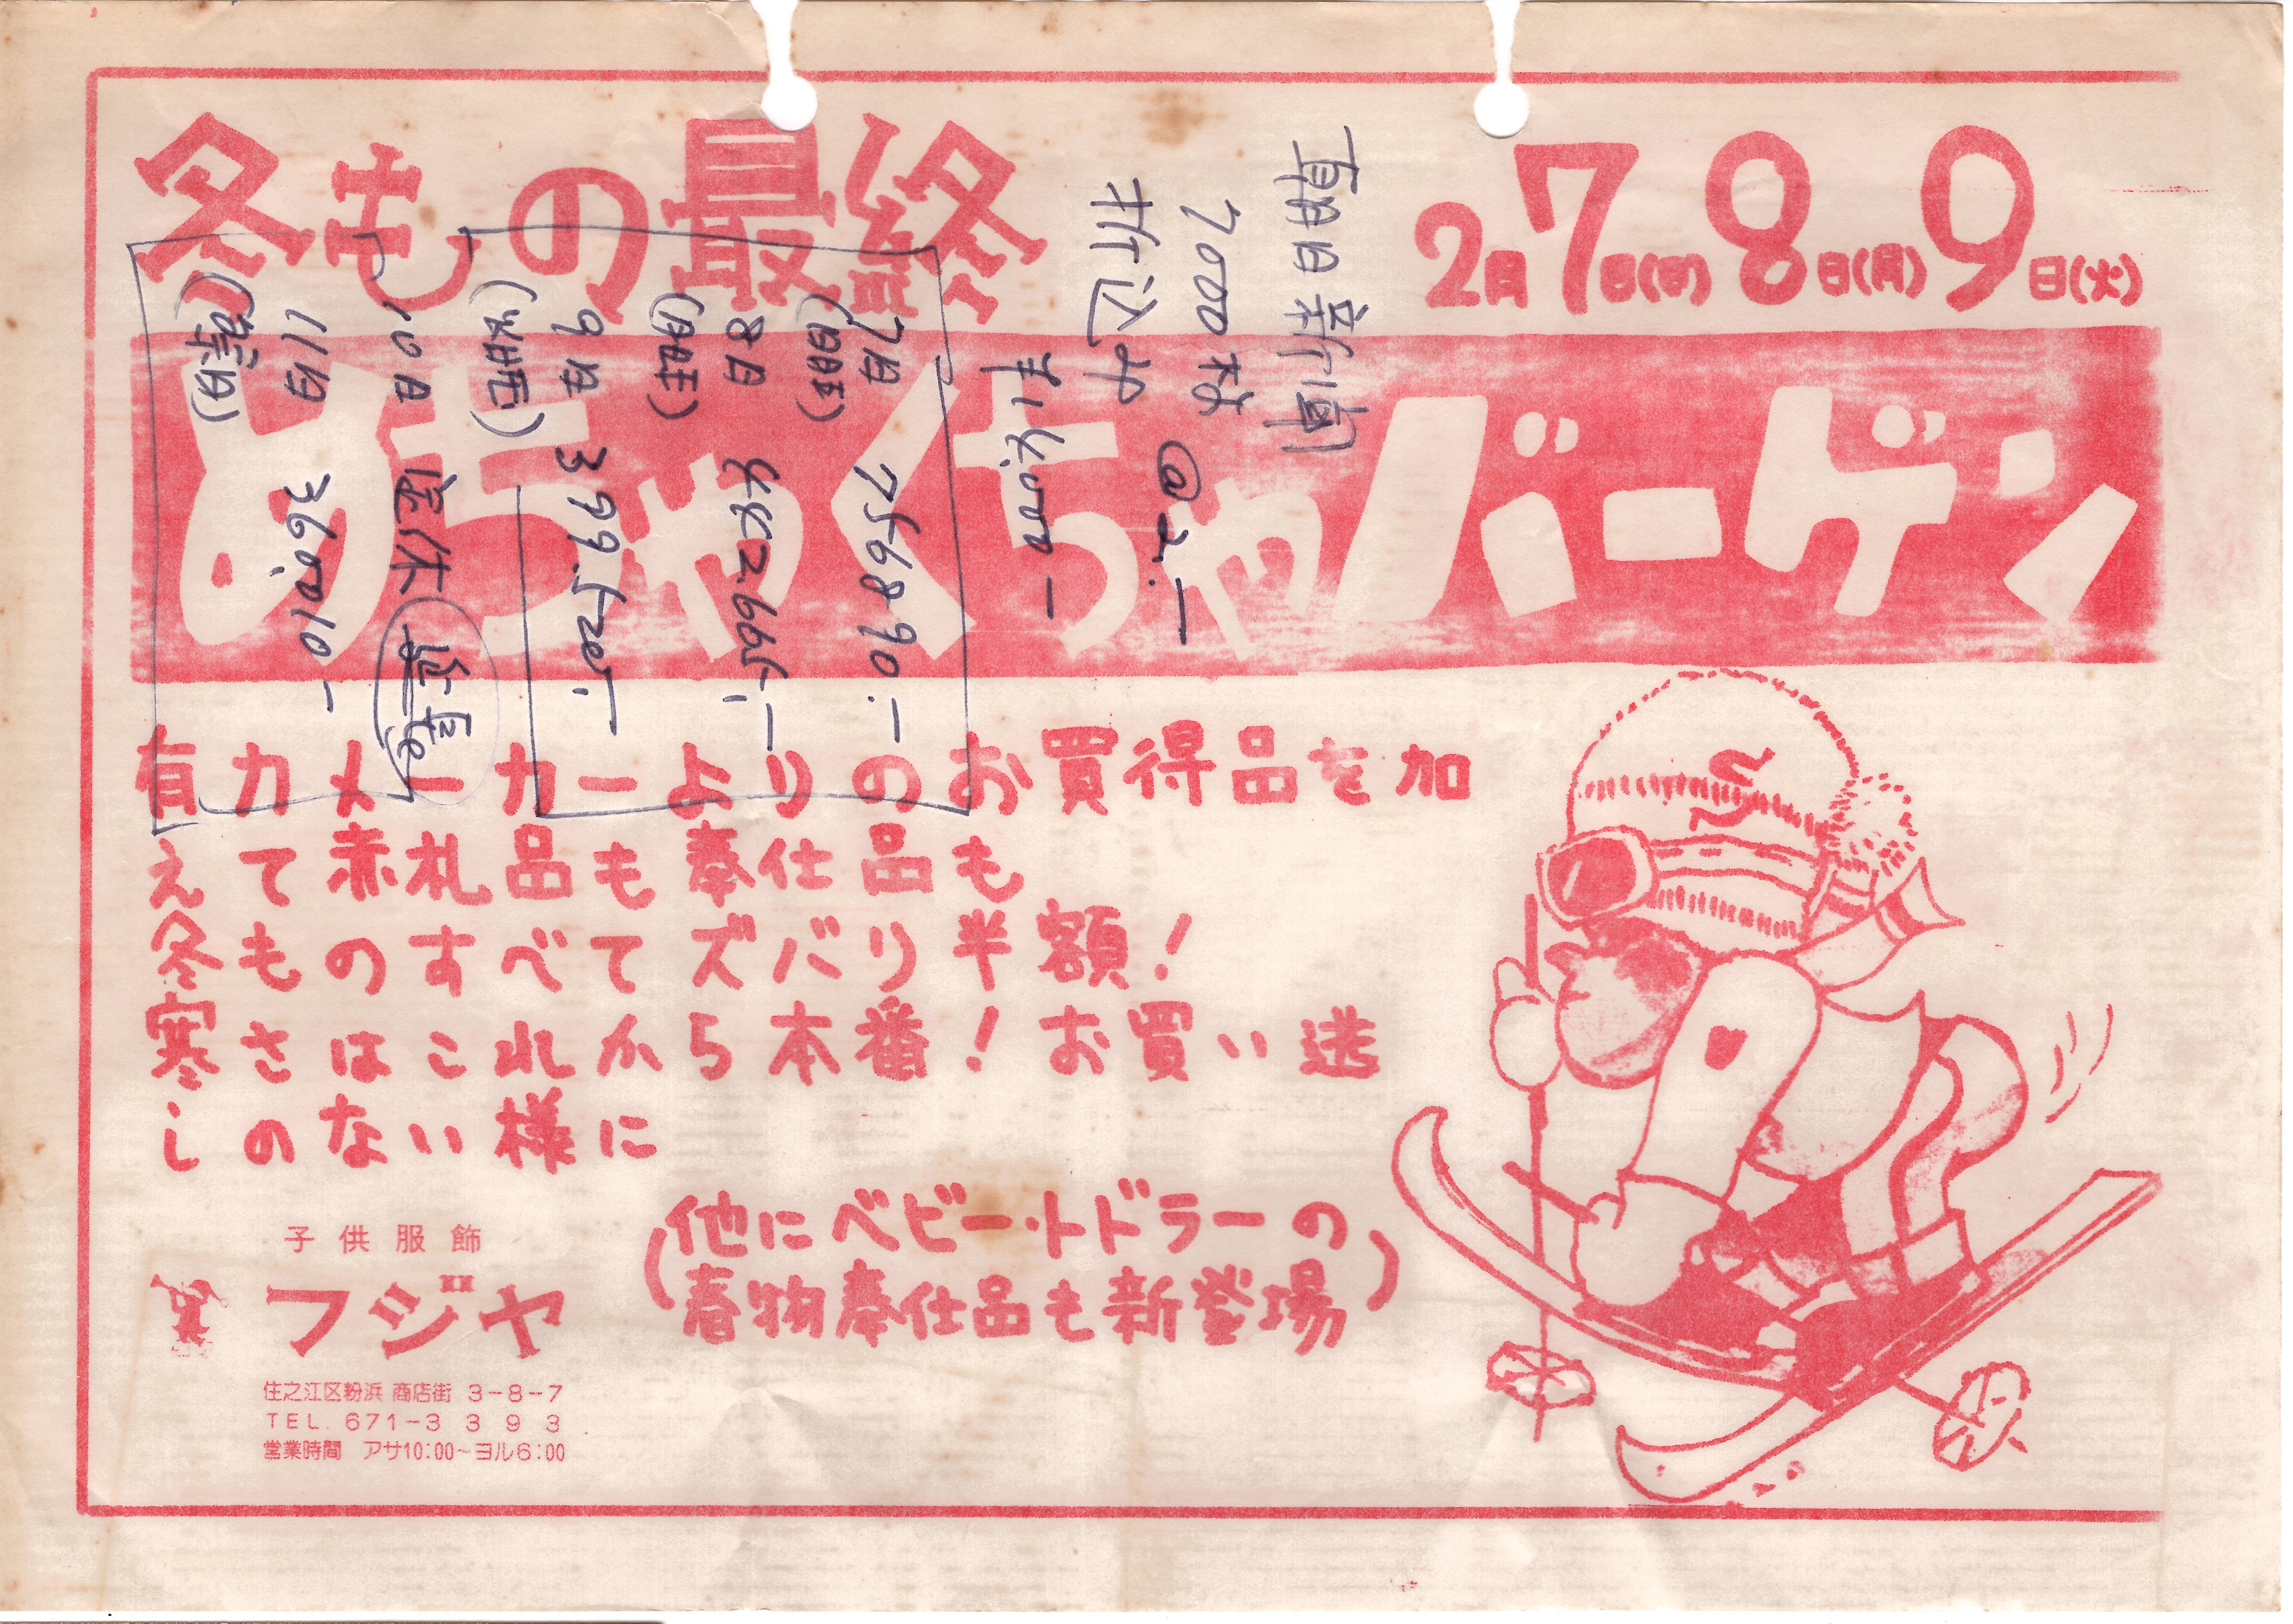 冬もの最終
2月7日(日)8日(月)9日(火)
めちゃくちゃバーゲン
有力メーカーよりのお買得品を加
えて赤札品も奉仕品も
冬ものすべてズバリ半額!
寒さはこれから本番!お買い逃
しのない様に
(他にベビー・トドラーの
春物奉仕品も新登場)
子供服飾
フジヤ
住之江区粉浜 商店街 3-8-7
TEL. 671-3393
営業時間 アサ10:00~ヨル6:00
朝日新聞
7000枚 @2.—
折込み
7日 756890.—
(日曜)
8日 442665.—
(月曜)
9日 399.520.—
(火曜)
10日 定休
11日 360.010—
(祭日)